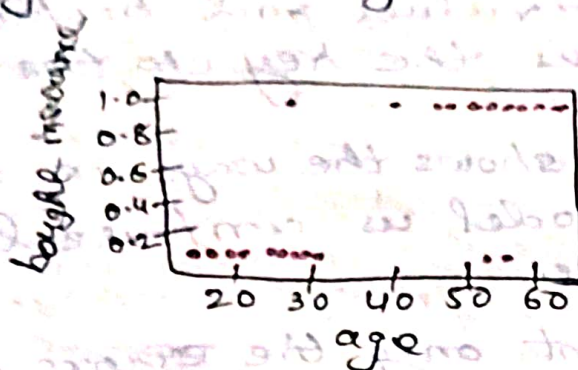 bought insurance
1.0
0.8
0.6
0.4
0.2
20 30 40 50 60
age